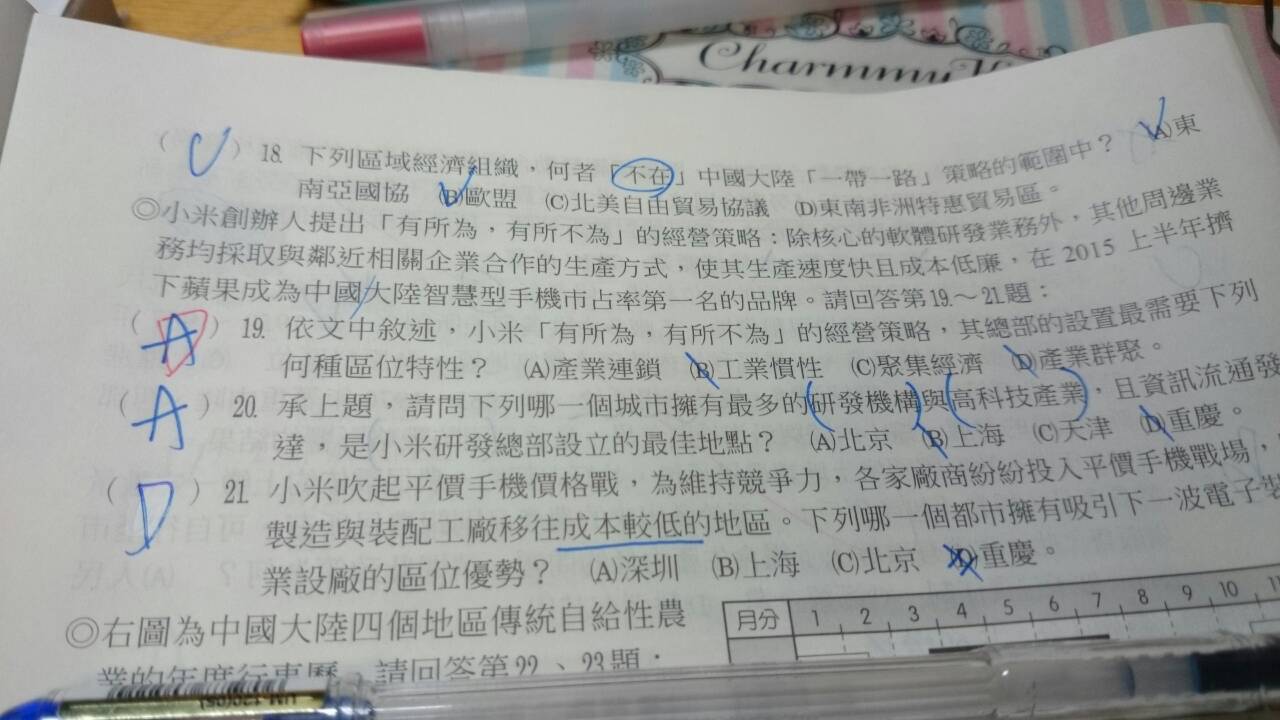 Charmmy
( C ) 18. 下列區域經濟組織，何者「不在」中國大陸「一帶一路」策略的範圍中？ (A)東
南亞國協 (B)歐盟 (C)北美自由貿易協議 (D)東南非洲特惠貿易區。
◎小米創辦人提出「有所為，有所不為」的經營策略：除核心的軟體研發業務外，其他周邊業
務均採取與鄰近相關企業合作的生產方式，使其生產速度快且成本低廉，在 2015 上半年擠
下蘋果成為中國大陸智慧型手機市占率第一名的品牌。請回答第19.～21.題：
( A ) 19. 依文中敘述，小米「有所為，有所不為」的經營策略，其總部的設置最需要下列
何種區位特性？ (A)產業連鎖 (B)工業慣性 (C)聚集經濟 (D)產業群聚。
( A ) 20. 承上題，請問下列哪一個城市擁有最多的(研發機構)與(高科技產業)，且資訊流通發
達，是小米研發總部設立的最佳地點？ (A)北京 (B)上海 (C)天津 (D)重慶。
( D ) 21. 小米吹起平價手機價格戰，為維持競爭力，各家廠商紛紛投入平價手機戰場，
製造與裝配工廠移往成本較低的地區。下列哪一個都市擁有吸引下一波電子製
業設廠的區位優勢？ (A)深圳 (B)上海 (C)北京 (D)重慶。
◎右圖為中國大陸四個地區傳統自給性農
業的年度行事曆，請回答第22.、23.題：
月分 1 2 3 4 5 6 7 8 9 10